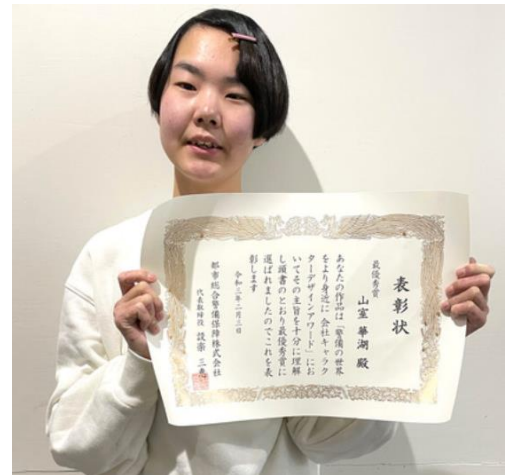 表彰状
最優秀賞
山室 華湖 殿
あなたの作品は「警備の世界
をより身近に 会社キャラク
ターデザインアワード」にお
いてその主旨を十分に理解
し頭書のとおり最優秀賞に
選ばれましたのでこれを表
彰します
令和三年二月三日
都市総合警備保障株式会社
代表取締役